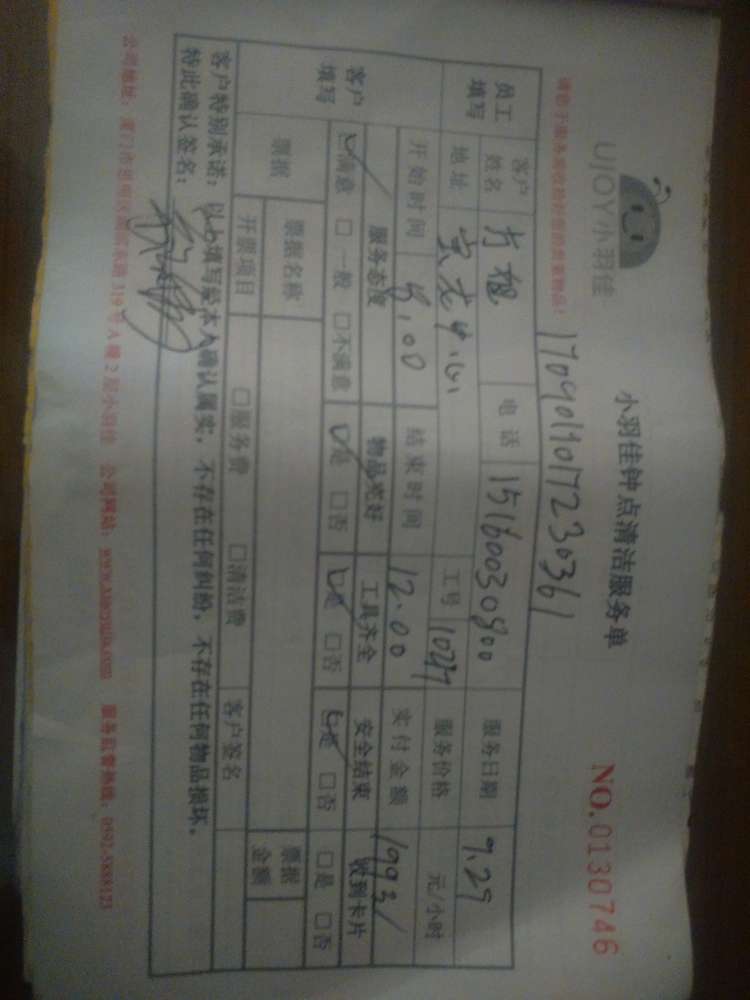 UJOY小羽佳
小羽佳钟点清洁服务单
NO.0130746
1709019017230361
员工填写 客户姓名 方姐 电话 15160030900 服务日期 9.29
地址 工号 服务价格 元/小时
客户填写 开始时间 8.00 结束时间 12.00 实付金额
服务态度 物品完好 工具齐全 安全结束 收到卡片
☑满意 □一般 □不满意 ☑是 □否 ☑是 □否 ☑是 □否 □是 □否
票据 票据名称 票据金额
开票项目 □服务费 □清洁费 客户签名
客户特别承诺：以上填写经本人确认属实，不存在任何纠纷，不存在任何物品损坏。
特此确认签名：
公司地址：厦门市思明区 319号A幢2层小羽佳 公司网站：www.xiaoyujia.com 服务监督热线：0592-5888123